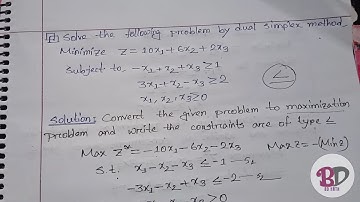 1) Solve the following problem by dual simplex method
Minimize Z = 10x₁ + 6x₂ + 2x₃
Subject to -x₁ + x₂ + x₃ ≥ 1
3x₁ + x₂ - x₃ ≥ 2
x₁, x₂, x₃ ≥ 0
≤
Solution: Convert the given problem to maximization
problem and write the constraints are of type ≤
Max Z* = -10x₁ - 6x₂ - 2x₃ Max Z = -(Min Z)
S.t. x₁ - x₂ - x₃ ≤ -1 - S₁
-3x₁ - x₂ + x₃ ≤ -2 - S₂
BD